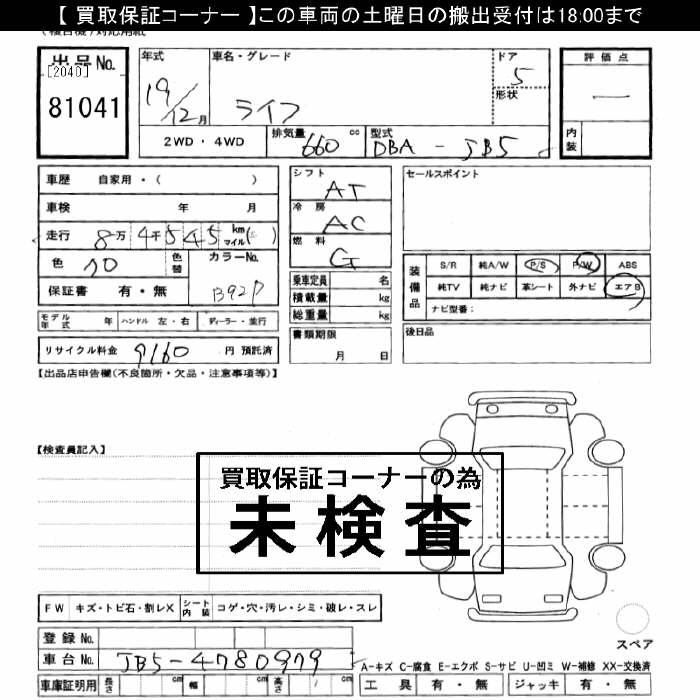 【 買取保証コーナー 】この車両の土曜日の搬出受付は18:00まで
出品No.
[2040]
81041
年式
19/12月
車名・グレード
ライフ
ドア
5
形状
評価点
一
内装
2WD・4WD
排気量
660 cc
型式
DBA - JB5
車歴 自家用・( )
車検 年 月
走行 8万4千545 km マイル( )
色 クロ
色替
カラーNo.
B92P
保証書 有・無
モデル年式 年 ハンドル 左・右 ディーラー・並行
リサイクル料金 9160 円 預託済
シフト
AT
冷房
AC
燃料
G
乗車定員 名
積載量 kg
総重量 kg
書類期限
月 日
セールスポイント
装備品
S/R 純A/W P/S P/W ABS
純TV 純ナビ 革シート 外ナビ エアB
ナビ型番:
後日品
【出品店申告欄(不良箇所・欠品・注意事項等)】
【検査員記入】
買取保証コーナーの為
未検査
FW キズ・トビ石・割レX シート内装 コゲ・穴・汚レ・シミ・破レ・スレ
スペア
登録 No.
車台 No. JB5-4780979
A-キズ C-腐食 E-エクボ S-サビ U-凹ミ W-補修 XX-交換済
車庫証明用 長さ cm 幅 cm 高さ cm
工具 有・無 ジャッキ 有・無